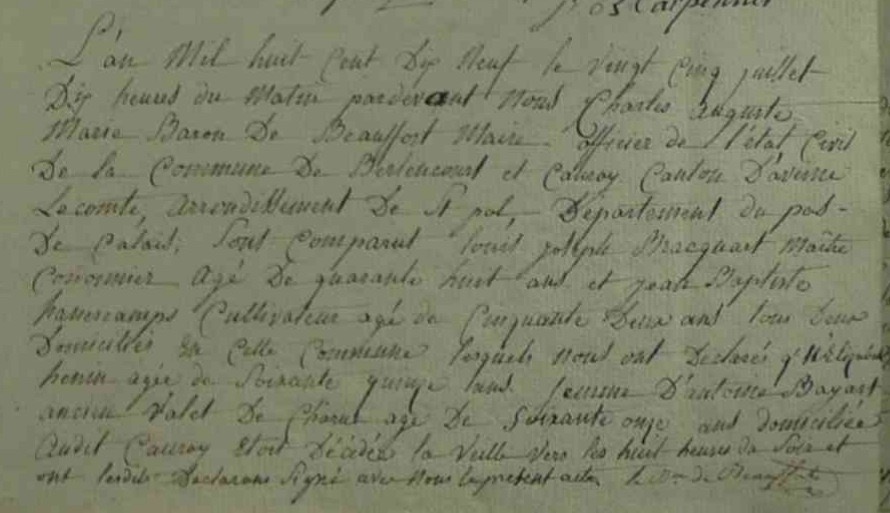 Jos Carpentier
L'an Mil huit Cent Dix Neuf le vingt Cinq juillet
Dix heures du Matin pardevant Nous Charles auguste
Marie Baron De Beauffort Maire officier de l'état Civil
De la Commune De Berlencourt et Cauroy Canton D'avesne
Lecomte, arrondissement De St pol, Département du pas-
De Calais, Sont Comparus louis joseph Bracquart Maître
Cordonnier Agé De quarante huit ans et jean Baptiste
Cultivateur agé de Cinquante Deux ans tous Deux
Domiciliés En Cette Commune lesquels Nous ont Declarés q'
henin agée de Soixante quinze ans femme D'antoine Bayart
ancien Valet De Charue agé De Soixante onze ans domiciliée
Audit Cauroy Etoit Décédée la Veille vers les huit heures du Soir et
ont lesdits Declarans Signé avec Nous le present acte le Bon de Beauffort